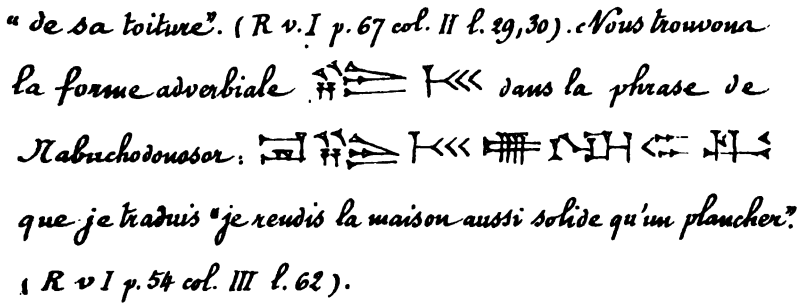 “ de sa toiture”. ( R v. I p. 67 col. II l. 29,30 ). Nous trouvons
la forme adverbiale dans la phrase de
Nabuchodonosor:
que je traduis “je rendis la maison aussi solide qu'un plancher”.
( R v I p. 54 col. III l. 62 ).